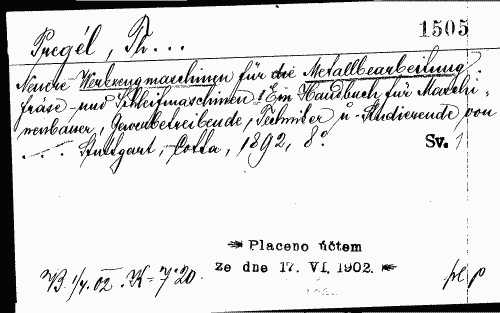 1505
Pregél, Th...
Neuere Werkzeugmaschinen für die Metallbearbeitung
fräse- und Schleifmaschinen: Ein Handbuch für Maschi-
nenbauer, Gewerbetreibende, Techniker u. Studierende, von
.... Stuttgart, Cotta, 1892, 8º. Sv. 1
Placeno účtem
ze dne 17. VI. 1902.
1/4. 02. K = 7·20.